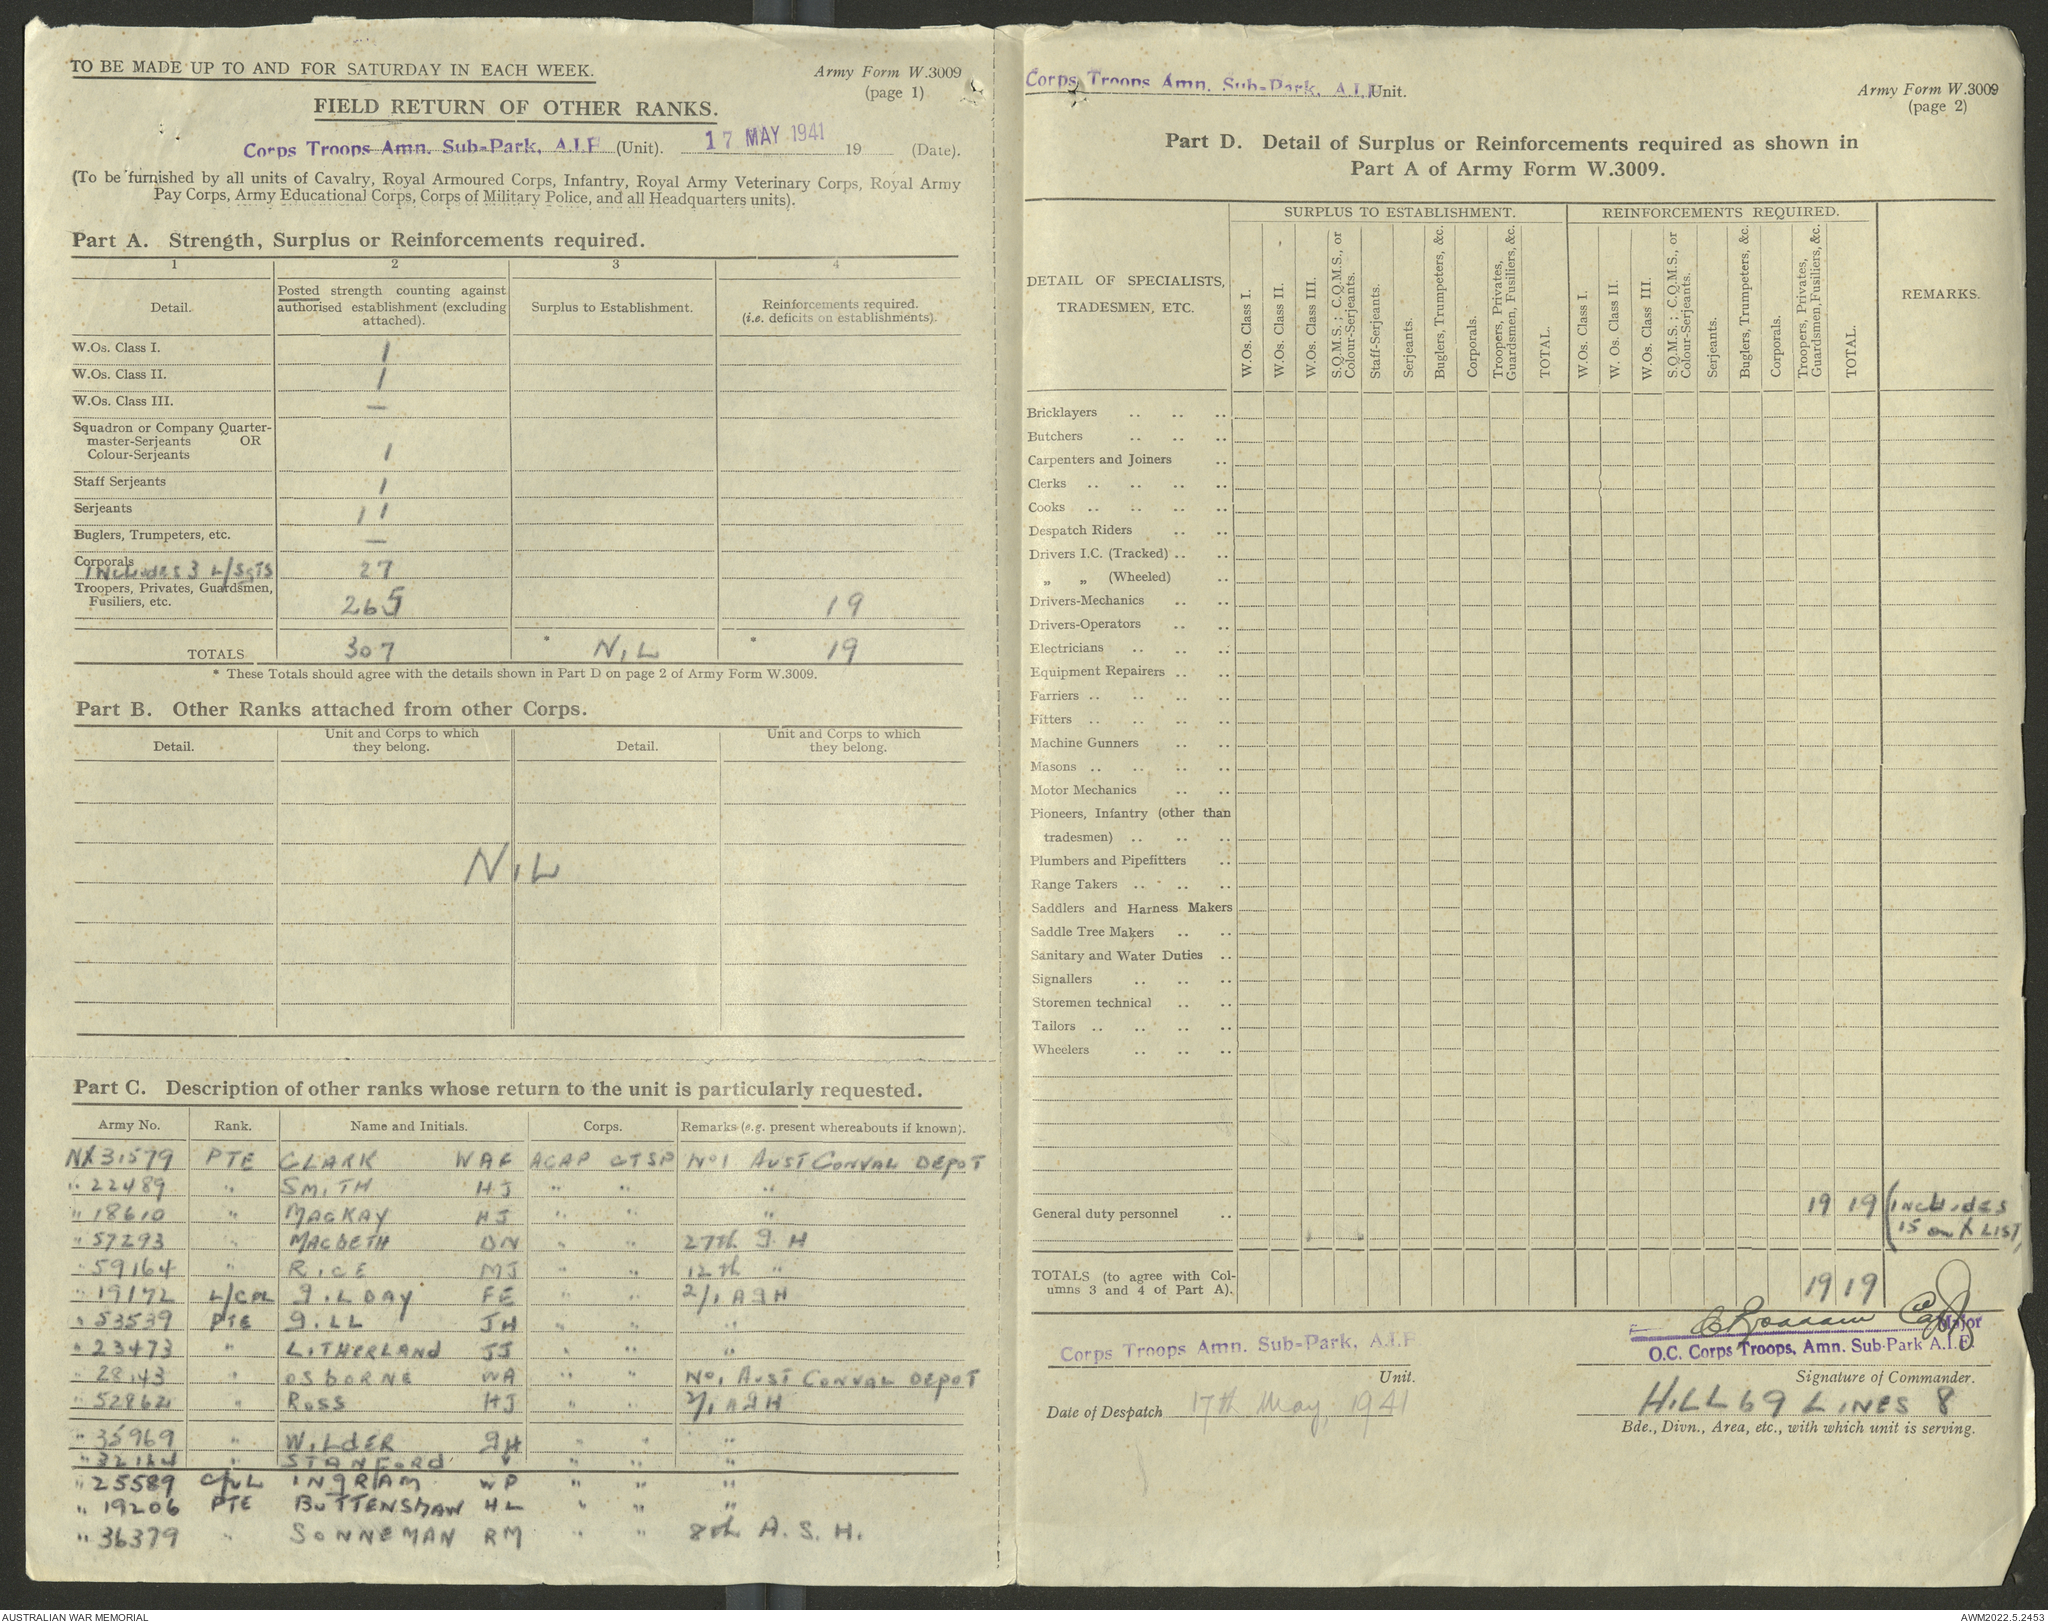 TO BE MADE UP TO AND FOR SATURDAY IN EACH WEEK.
Army Form W.3009
(page 1)
FIELD RETURN OF OTHER RANKS.
Corps Troops Amn. Sub-Park, A.I.F (Unit). 17 MAY 1941 19 (Date).
(To be furnished by all units of Cavalry, Royal Armoured Corps, Infantry, Royal Army Veterinary Corps, Royal Army
Pay Corps, Army Educational Corps, Corps of Military Police, and all Headquarters units).
Part A. Strength, Surplus or Reinforcements required.
1 2 3 4
Detail. Posted strength counting against authorised establishment (excluding attached). Surplus to Establishment. Reinforcements required. (i.e. deficits on establishments).
W.Os. Class I. 1
W.Os. Class II. 1
W.Os. Class III. —
Squadron or Company Quarter-
master-Serjeants OR
Colour-Serjeants 1
Staff Serjeants 1
Serjeants 11
Buglers, Trumpeters, etc. —
Corporals
Includes 3 L/Sgts 27
Troopers, Privates, Guardsmen,
Fusiliers, etc. 265 19
TOTALS 307 * NIL * 19
* These Totals should agree with the details shown in Part D on page 2 of Army Form W.3009.
Part B. Other Ranks attached from other Corps.
Detail. Unit and Corps to which they belong. Detail. Unit and Corps to which they belong.
NIL
Part C. Description of other ranks whose return to the unit is particularly requested.
Army No. Rank. Name and Initials. Corps. Remarks (e.g. present whereabouts if known).
NX31579 PTE CLARK WAF ACAP CTSP No1 AUST CONVAL DEPOT
" 22489 " SMITH HJ " " "
" 18610 " MACKAY HJ " " "
" 57293 " MACBETH DN " " 27th G H
" 59164 " RICE MJ " " 12th "
" 19172 L/CPL GILDAY FE " " 2/1 AGH
" 53539 PTE GILL JH " " "
" 23473 " LITHERLAND JJ " " "
" 28143 " OSBORNE WA " " No1 AUST CONVAL DEPOT
" 52862 " ROSS HJ " " 2/1 AGH
" 35969 " WILDER GH " " "
" 32164 " STANFORD V " " "
" 25589 CPL INGRAM WP " " "
" 19206 PTE BUTTENSHAW HL " " "
" 36379 " SONNEMAN RM " " 8th A.S.H.
Corps Troops Amn. Sub-Park, A.I.F Unit.
Army Form W.3009
(page 2)
Part D. Detail of Surplus or Reinforcements required as shown in
Part A of Army Form W.3009.
DETAIL OF SPECIALISTS, TRADESMEN, ETC. SURPLUS TO ESTABLISHMENT. REINFORCEMENTS REQUIRED. REMARKS.
W.Os. Class I. W.Os. Class II. W.Os. Class III. S.Q.M.S.; C.Q.M.S., or Colour-Serjeants. Staff-Serjeants. Serjeants. Buglers, Trumpeters, &c. Corporals. Troopers, Privates, Guardsmen, Fusiliers, &c. TOTAL.
W.Os. Class I. W. Os. Class II. W.Os. Class III. S.Q.M.S.; C.Q.M.S., or Colour-Serjeants. Serjeants. Buglers, Trumpeters, &c. Corporals. Troopers, Privates, Guardsmen, Fusiliers, &c. TOTAL.
Bricklayers
Butchers
Carpenters and Joiners
Clerks
Cooks
Despatch Riders
Drivers I.C. (Tracked)
„ „ (Wheeled)
Drivers-Mechanics
Drivers-Operators
Electricians
Equipment Repairers
Farriers
Fitters
Machine Gunners
Masons
Motor Mechanics
Pioneers, Infantry (other than
tradesmen)
Plumbers and Pipefitters
Range Takers
Saddlers and Harness Makers
Saddle Tree Makers
Sanitary and Water Duties
Signallers
Storemen technical
Tailors
Wheelers
General duty personnel 19 19 (INCLUDES
15 on X LIST)
TOTALS (to agree with Col-
umns 3 and 4 of Part A). 19 19
Capt
Major
Corps Troops Amn. Sub-Park, A.I.F
O.C. Corps Troops, Amn. Sub-Park A.I.F.
Unit.
Signature of Commander.
Date of Despatch 17th May, 1941
HILL 69 LINES 8
Bde., Divn., Area, etc., with which unit is serving.
AUSTRALIAN WAR MEMORIAL
AWM2022.5.2453